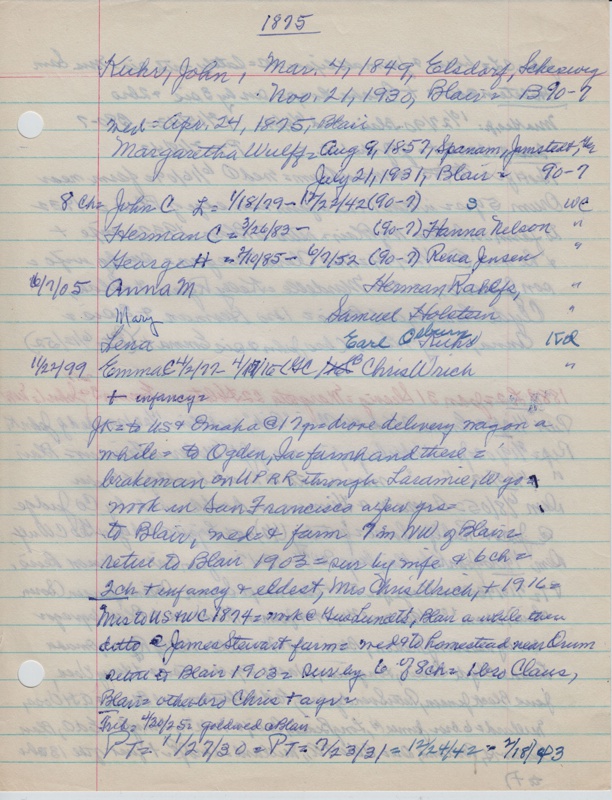 1875
Kuhr, John, Mar. 4, 1849, Elsdorf, Scheswig
Nov. 21, 1930, Blair = B90-7
med = Apr. 24, 1875, Blair
Margaretha Wulff = Aug 9, 1857, Spanam, Jamstedt, Ger
July 21, 1931, Blair = 90-7
8 ch = John C L = 1/18/79 - 12/23/42 (90-7) S WC
Herman C = 3/26/83 - (90-7) Hanna Nelson "
George H = 2/10/85 - 6/7/52 (90-7) Rena Jensen "
6/7/05 Anna M Herman Rahlfs, "
Mary Samuel Holstein
Lena Earl Osburn Kuhr
11/22/99 Emma C 4/2/77 Chris Wrich "
+ infancy =
JK = to US & Omaha @ 17 yr = drove delivery wagon a
while = to Ogden, Ia = farmhand there =
brakeman on UPRR through Laramie, Wyo =
work in San Francisco a few yrs =
to Blair, med = & farm 7 m NW of Blair =
retire to Blair 1903 = sur by wife & 6 ch =
2 ch + infancy & eldest, Mrs Chris Wrich, + 1916 =
Mrs to US & WC 1874 = wk @ Blair a while then
ditto @ James Stewart farm = med & to homestead near Orum
retire to Blair 1903 = sur by 6 of 8 ch = 1 bro Claus,
Blair = other bro Chris + ago =
Trib = 4/20/25 = goldwed @ Blair
PT = 11/27/30 = PT = 7/23/31 = 12/24/42 = 2/18/43